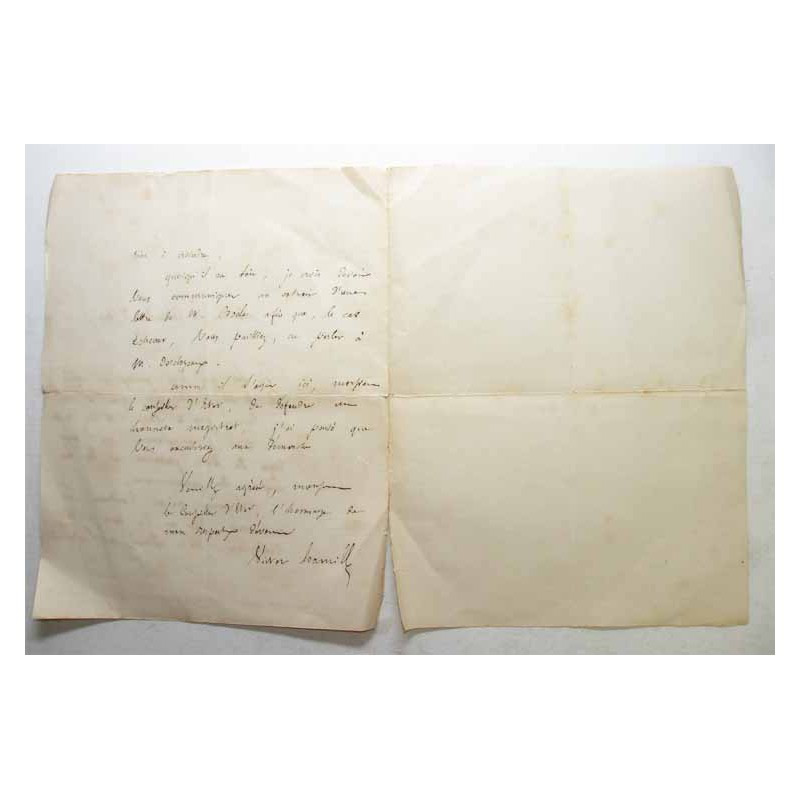 rien à craindre,
quoiqu'il en soit, je crois devoir
Vous communiquer un extrait d'une
lettre de M. afin que, le cas
échéant, Vous puissiez, en parler à
M.
comme il s'agit ici, monsieur
le conseiller d'Etat, de défendre un
honnête magistrat, j'ai pensé que
Vous excuseriez ma démarche
Veuillez agréer, monsieur
le Conseiller d'Etat, l'hommage de
mon respectueux dévouement
Victor